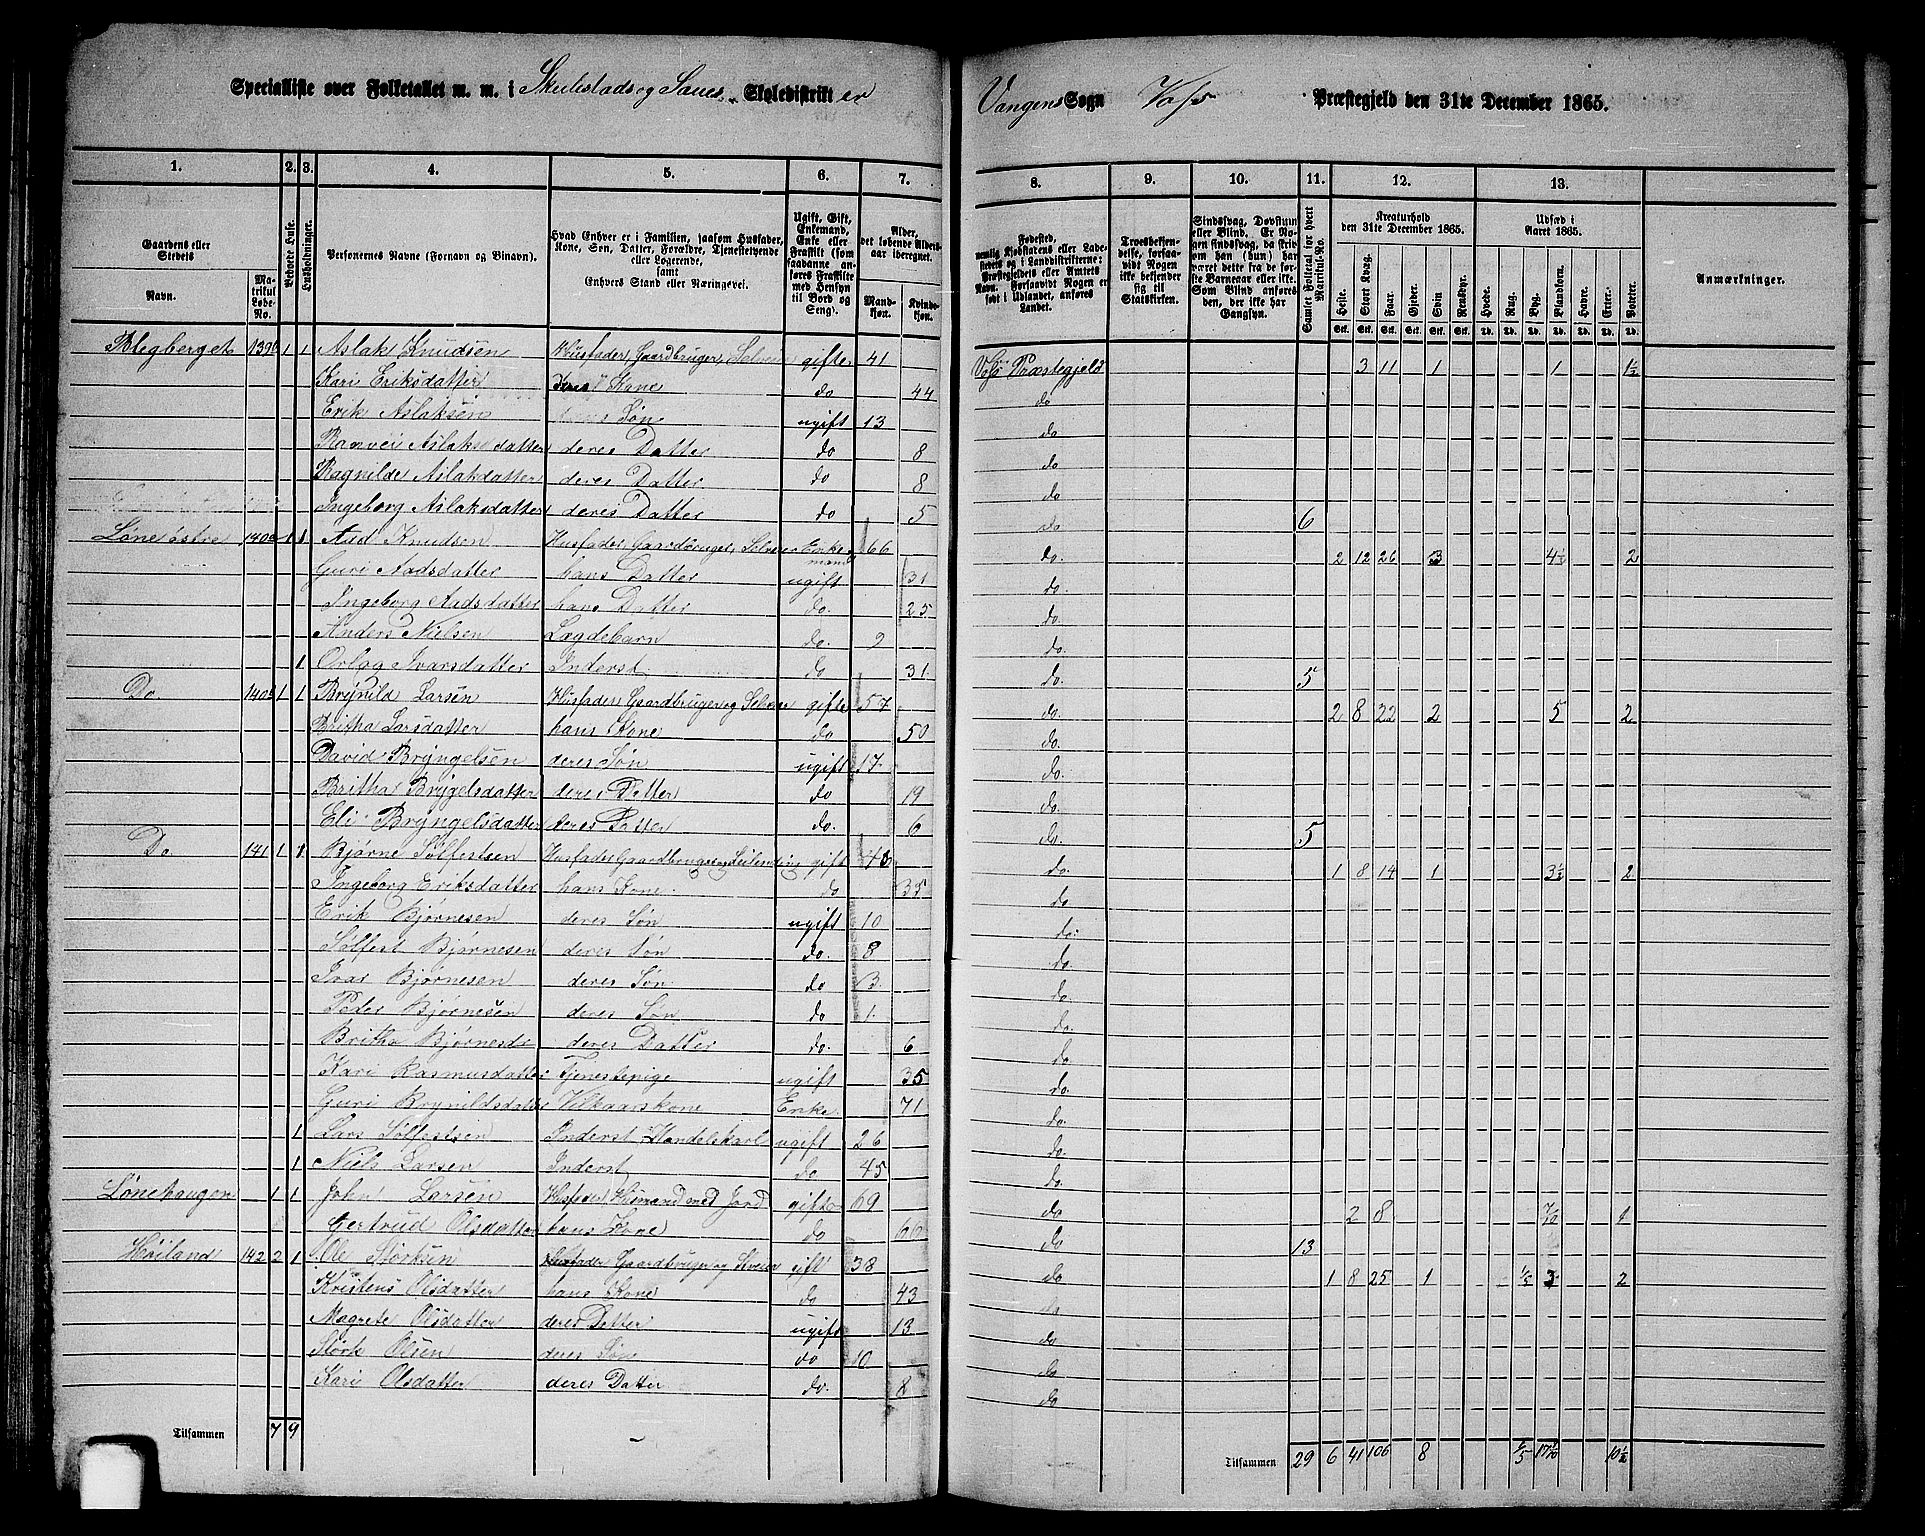 Specialliste over Folketallet m. m. i Skulestads og Saues Skoledistrikter
Vangens Sogn Voss Præstegjeld den 31te December 1865.
1. 2. 3. 4. 5. 6. 7. 8. 9. 10. 11. 12. 13.
Gaardens eller Stedets
Navn.
Matrikul Løbe-No.
Beboede Huse.
Husholdninger.
Personernes Navne (Fornavn og Binavn).
Hvad Enhver er i Familien, saasom Husfader, Kone, Søn, Datter, Forældre, Tjenestetyende eller Logerende, samt Enhvers Stand eller Næringsvei.
Ugift, Gift, Enkemand, Enke eller Fraskilt (som saadanne anføres Fraskilte med Hensyn til Bord og Seng).
Alder, det løbende Aldersaar iberegnet.
Mandkjøn.
Kvindekjøn.
Fødested, nemlig Kjøbstadens eller Ladestedets eller i Landdistrikterne: Præstegjeldets eller Amtets Navn. Forsaavidt Nogen er født i Udlandet, anføres Landet.
Troesbekjendelse, forsaavidt Nogen ikke bekjender sig til Statskirken.
Sindssvag, Døvstum eller Blind. Er Nogen sindssvag, da skrives om han (hun) har været dette fra de første Barneaar eller ikke. Som Blind anføres den, der ikke har Gangsyn.
Samlet Folketal for hvert Matrikul-No.
Kreaturhold den 31te December 1865.
Heste. Stort Kvæg. Faar. Gjeder. Svin. Rensdyr.
Udsæd i Aaret 1865.
Hvede. Rug. Byg. Blandkorn. Havre. Erter. Poteter.
Anmærkninger.
Blegberget 139 1 1 Aslak Knudsen Husfader, Gaardbruger, Selveier gifte 41 Voss Præstegjeld 3 11 1 1 1½
Kari Eriksdatter Kone do 44 do
Erik Aslaksen Søn ugift 13 do
Ranvei Aslaksdatter deres Datter do 8 do
Ragnilde Aslakdatter deres Datter do 8 do
Ingeborg Aslaksdatter deres Datter do 5 do 6
Løne østre 140a 1 1 Aad Knudsen Husfader, Gaardbruger, Selveier Enkemand 66 do. 2 12 26 3 4½ 2
Guri Aadsdatter hans Datter ugift 31 do.
Ingeborg Aadsdatter hans Datter do. 25 do.
Anders Nielsen Lægdebarn do. 9 do.
1 Orlog Ivarsdatter Inderst do 31. do. 5
Do 140b 1 1 Brynild Larsen Husfader Gaardbruger og Selveier gifte 57 do. 2 8 22 2 5 2
Britha Larsdatter hans Kone do 50 do.
David Bryngelsen deres Søn ugift 17 do.
Britha Brygelsdatter deres Datter do 19 do.
Eli Bryngelsdatter deres Datter do. 6 do. 5
Do 141 1 1 Bjørne Sølfestsen Husfader Gaardbruger og Leilending gift 43 do. 1 8 14 1 3½ 2
Ingeborg Eriksdatter hans Kone. do 35 do
Erik Bjørnesen deres Søn ugift 10 do.
Sølfest Bjørnesen deres Søn do. 8 do
Ivar Bjørnesen deres Søn do 3. do.
Peder Bjørnesen deres Søn do 1. do
Britha Bjørnesdr deres Datter do. 6 do
Kari Rasmusdatter Tjenestepige ugift 35 do.
Guri Brynildsdatter Vilkaarskone Enke. 71 do.
1 Lars Sølfestsen Inderst Handelskarl ugift 26 do.
1 Niels Larsen Inderst do 45 do.
Lønehaugen 1 1 John Larsen Husfader Husmand med Jord gifte 69 do 2 8 7/10 1
Gertrud Olsdatter hans Kone do 60 do 13
Høiland 142 2 1 Ole Størksen Husfader Gaardbruger og Selveier gift 38 do 1 8 25 1 3 2
Olsdatter hans Kone do 43 do
Magrete Olsdatter deres Datter ugift 13 do
Størk Olsen deres Søn do 10 do
Kari Olsdatter deres Datter do. 8 do
Tilsammen 7 9
Tilsammen 29 6 41 106 8 10½